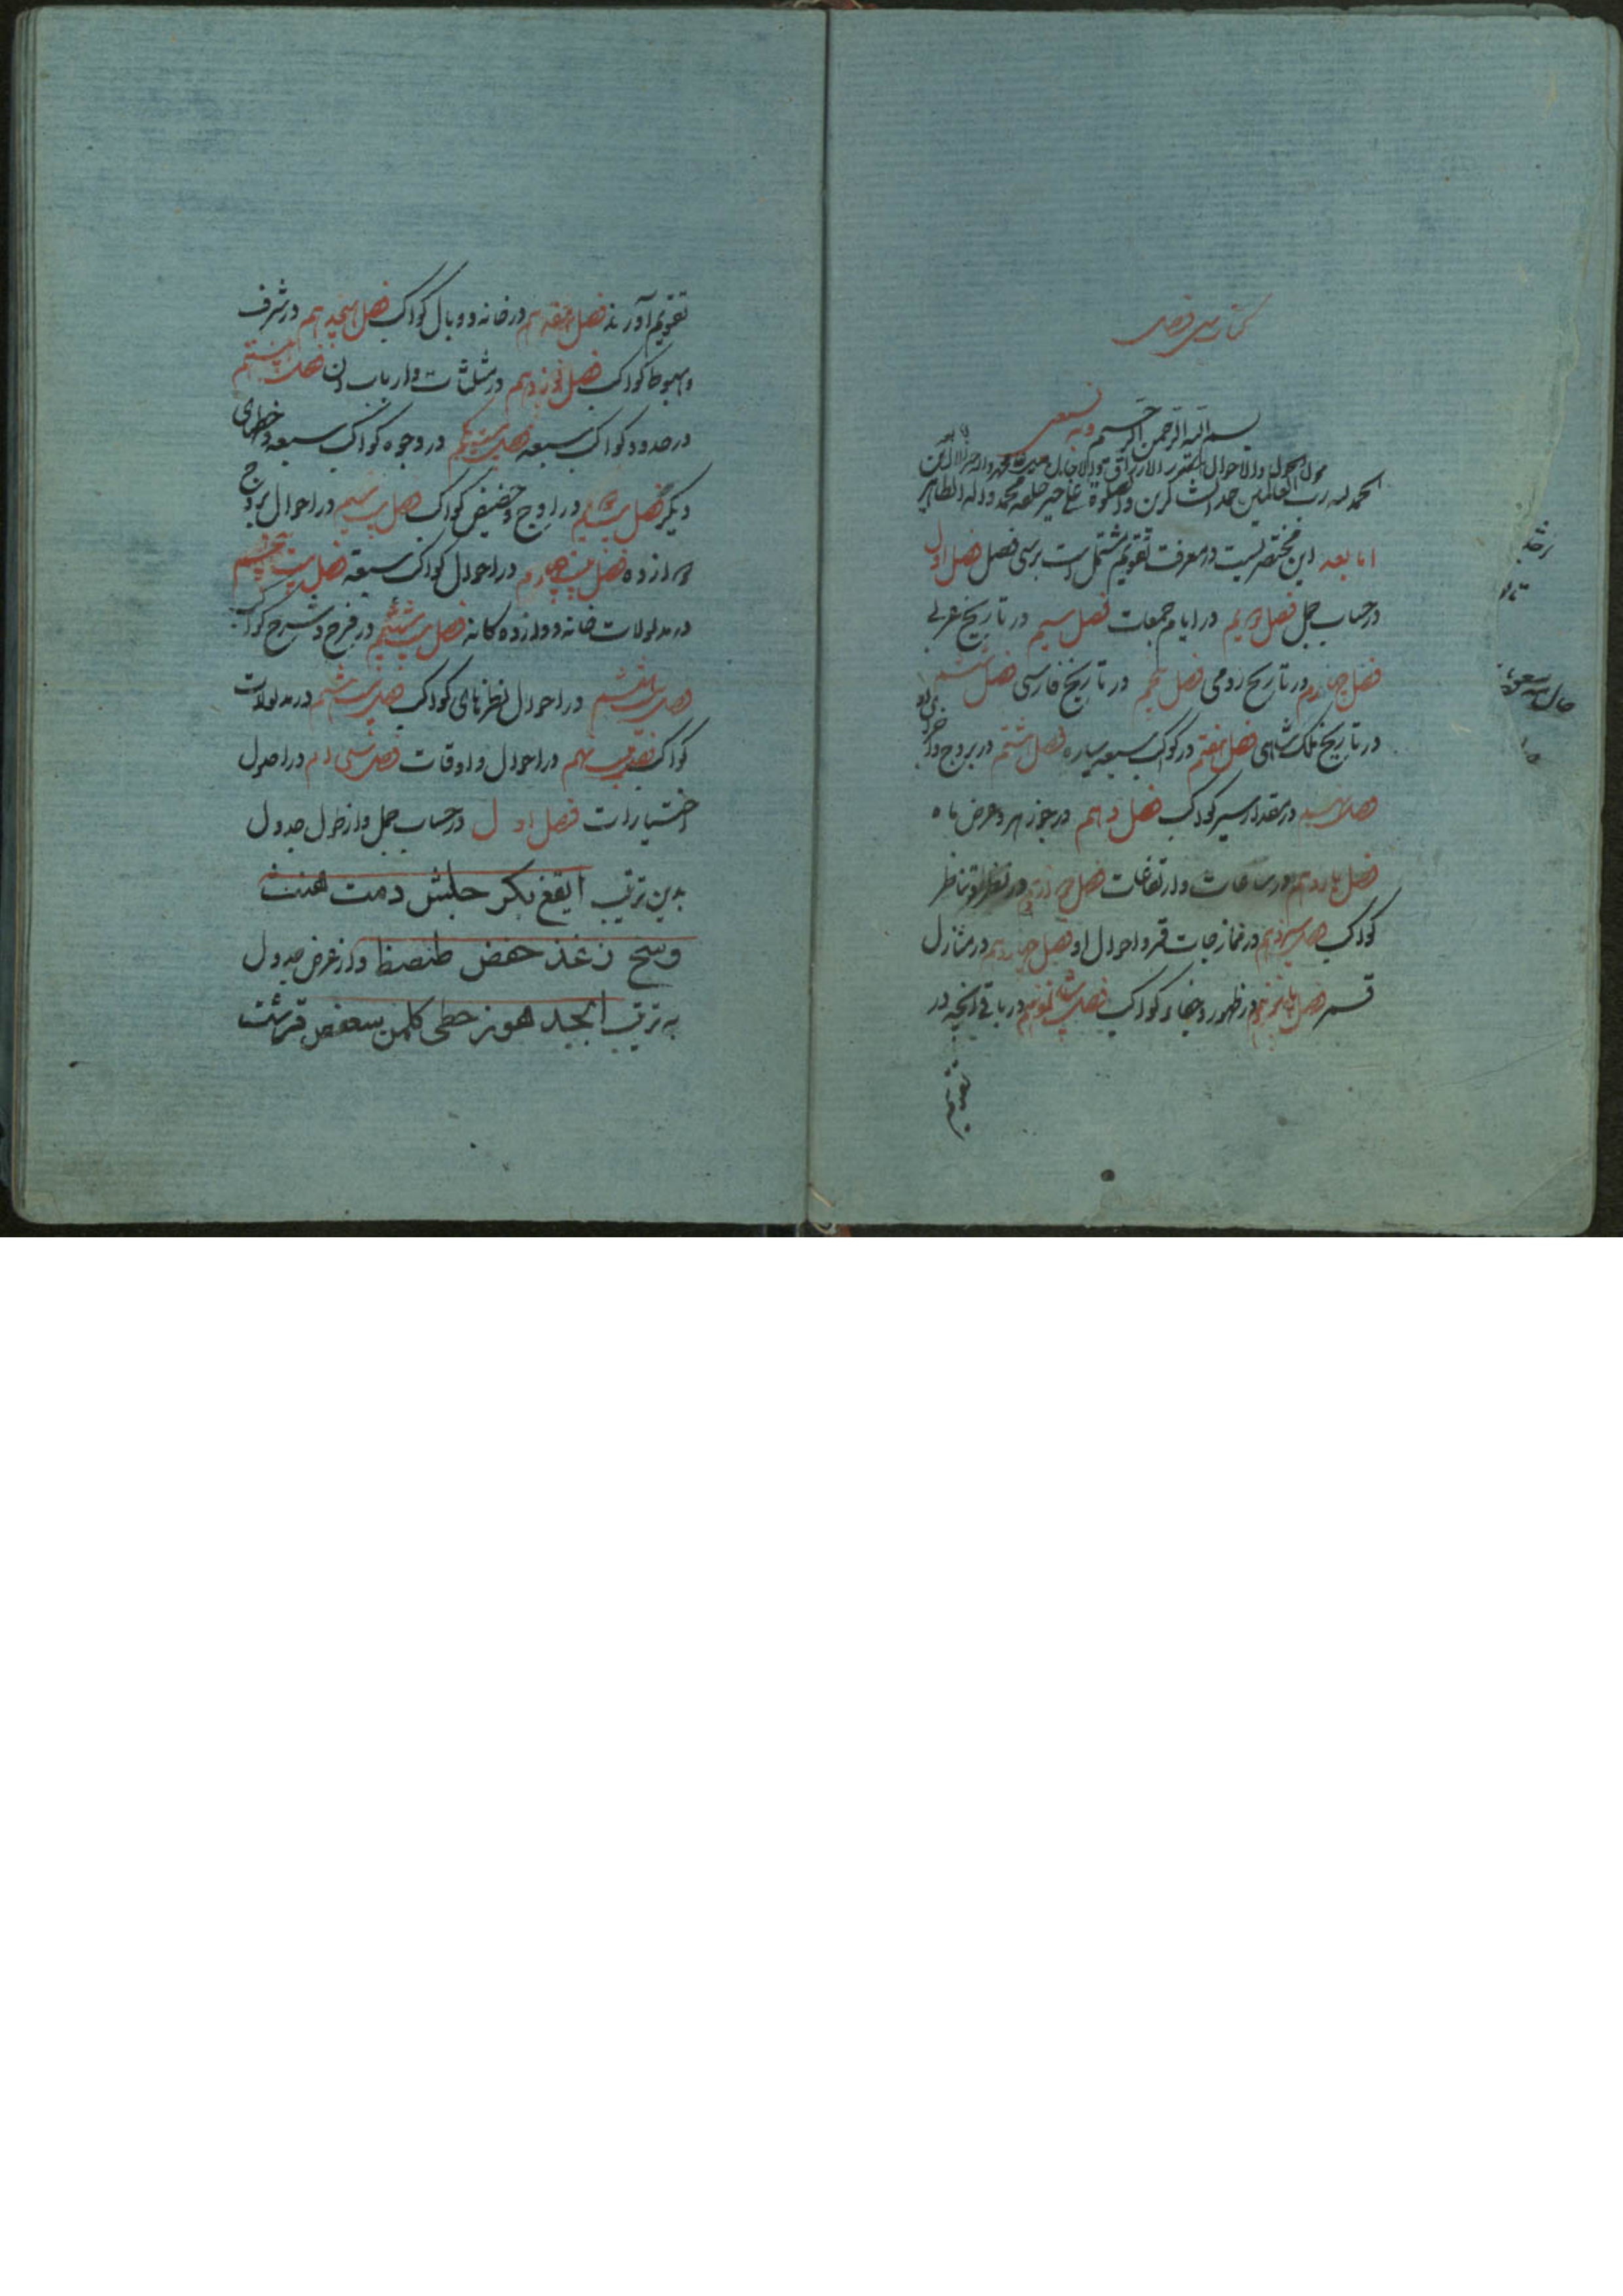 کتاب سی فصل
بسم الله الرحمن الرحیم وبه نستعین
الحمد لله رب العالمین حمد الشاکرین والصلوة علی خیر خلقه محمد واله الطاهرین
اما بعد این مختصریست در معرفت تقویم مشتمل است بر سی فصل فصل اول
در حساب جمل فصل دویم در ایام جمعات فصل سیم در تاریخ عربی
فصل چهارم در تاریخ رومی فصل پنجم در تاریخ فارسی فصل ششم
در تاریخ ملکشاهی فصل هفتم در کواکب سبعه سیاره فصل هشتم در بروج و اجزای او
فصل نهم در مقدار سیر کواکب فصل دهم در جوزهر و عرض ماه
فصل یازدهم در ساعات و ارتفاعات فصل دوازدهم در نظر و تناظر
کواکب فصل سیزدهم در ممازجات قمر و احوال او فصل چهاردهم در منازل
قمر فصل پانزدهم در ظهور و خفاء کواکب فصل شانزدهم در باقی آنچه در
تقویم
تقویم آورند فصل هفدهم در خانه و وبال کواکب فصل هیجدهم در شرف
و هبوط کواکب فصل نوزدهم در مثلثات و ارباب آن فصل بیستم
در حدود کواکب سبعه فصل بیست و یکم در وجوه کواکب سبعه و حظهای
دیگر فصل بیست و دویم در اوج و حضیض کواکب فصل بیست و سیم در احوال بروج
دوازده فصل بیست و چهارم در احوال کواکب سبعه فصل بیست و پنجم
در مدلولات خانه دوازده کانه فصل بیست و ششم در فرح و شرح کواکب
فصل بیست و هفتم در احوال نظرهای کواکب فصل بیست و هشتم در مدلولات
کواکب فصل بیست و نهم در احوال و اوقات فصل سی ام در اصول
اختیارات فصل اول در حساب جمل و از طول جدول
بدین ترتیب ایقغ بکر جلش دمت هنث
وسخ زعذ حفض طصظ و از عرض جدول
به ترتیب ابجد هوز حطی کلمن سعفص قرشت